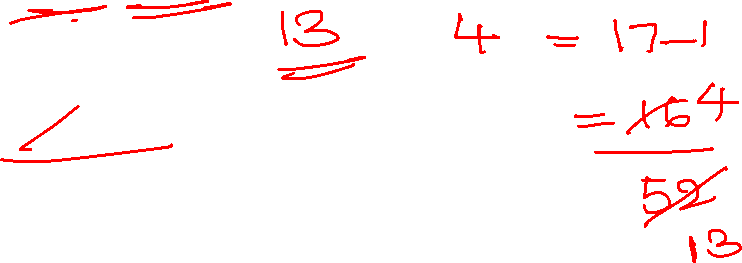 13 4 = 17-1
= 16 4
52
13